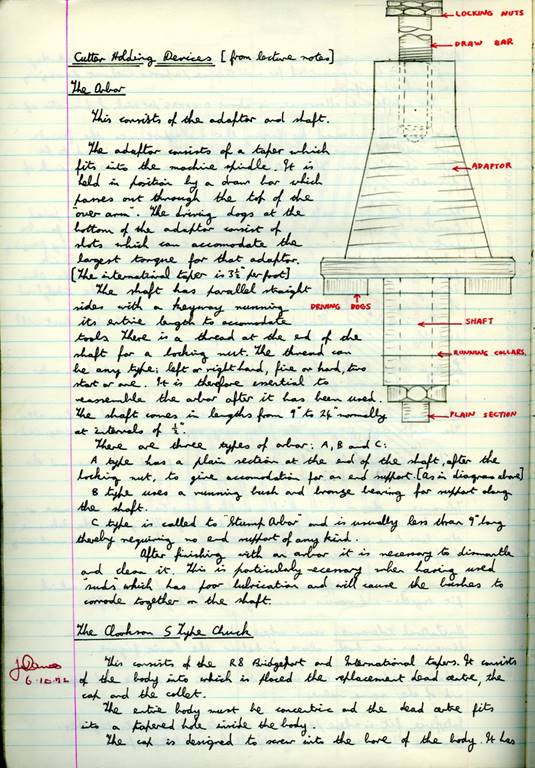 LOCKING NUTS
DRAW BAR
Cutter Holding Devices [from lecture notes]
The Arbor
This consists of the adaptor and shaft.
The adaptor consists of a taper which
fits into the machine spindle. It is
held in position by a draw bar which
passes out through the top of the
"over arm". The driving dogs at the
bottom of the adaptor consist of
slots which can accomodate the
largest torque for that adaptor.
[The international taper is 3½" per foot]
ADAPTOR
The shaft has parallel straight
sides with a keyway running
its entire length to accomodate
tools. There is a thread at the end of the
shaft for a locking nut. The thread can
be any type; left or right hand, fine or hard, two
start or one. It is therefore essential to
reassemble the arbor after it has been used.
The shaft comes in lengths from 9" to 24" normally
at intervals of ½".
DRIVING DOGS
SHAFT
RUNNING COLLARS.
PLAIN SECTION
There are three types of arbor: A, B and C:
A type has a plain section at the end of the shaft, after the
locking nut, to give accomodation for an end support. [As in diagram above]
B type uses a running bush and bronze bearing for support along
the shaft.
C type is called to "Stump Arbor" and is usually less than 9" long
thereby requiring no end support of any kind.
After finishing with an arbor it is necessary to dismantle
and clean it. This is particularly necessary when having used
"suds" which has poor lubrication and will cause the bushes to
corrode together on the shaft.
The Clarkson S Type Chuck
6.10.72
This consists of the R8 Bridgeport and International tapers. It consists
of the body into which is placed the replacement dead centre, the
cap and the collet.
The entire body must be concentric and the dead centre fits
into a tapered hole inside the body.
The cap is designed to screw into the bore of the body. It has